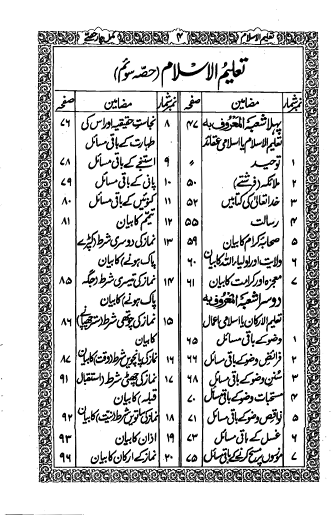 تعلیم الاسلام ۴ مکمل چار حصے
تعلیمُ الاسلام (حصّہ سوئم)
نمبر شمار مضامین صفحہ
پہلا شعبۃ المعروف بہ ۴۷
تعلیم الایمان یا اسلامی عقائد
۱ توحید ״
۲ ملائکہ (فرشتے) ۵۰
۳ خدا تعالیٰ کی کتابیں ۵۲
۴ رسالت ۵۵
۵ صحابہ کرام کا بیان ۵۹
۶ ولایت اور اولیاء اللہ کا بیان ۶۰
۷ معجزہ اور کرامت کا بیان ۶۱
دوسرا شعبۃ المعروف بہ
تعلیم الارکان یا اسلامی اعمال
۱ وضو کے باقی مسائل ۶۵
۲ فرائض وضو کے باقی مسائل ۶۶
۳ سنن وضو کے باقی مسائل ۶۸
۴ مستحبات وضو کے باقی مسائل ۷۰
۵ نواقض وضو کے باقی مسائل ۷۱
۶ غسل کے باقی مسائل ۷۳
۷ موزوں پر مسح کرنے کے باقی مسائل ۷۵
نمبر شمار مضامین صفحہ
۸ نجاست حقیقیہ اور اس کی ۷۶
طہارت کے باقی مسائل
۹ استنجے کے باقی مسائل ۷۸
۱۰ پانی کے باقی مسائل ۷۹
۱۱ کنوئیں کے باقی مسائل ۸۰
۱۲ تیمم کا بیان ۸۱
۱۳ نماز کی دوسری شرط (کپڑے
پاک ہونے) کا بیان
۱۴ نماز کی تیسری شرط (جگہ ۸۵
پاک ہونے) کا بیان
۱۵ نماز کی چوتھی شرط (ستر چھپانے) ۸۶
کا بیان
۱۶ نماز کی پانچویں شرط (وقت) کا بیان ۸۷
۱۷ نماز کی چھٹی شرط (استقبال ۹۱
قبلہ) کا بیان
۱۸ نماز کی ساتویں شرط (نیت) کا بیان ۹۲
۱۹ اذان کا بیان ۹۳
۲۰ نماز کے ارکان کا بیان ۹۶